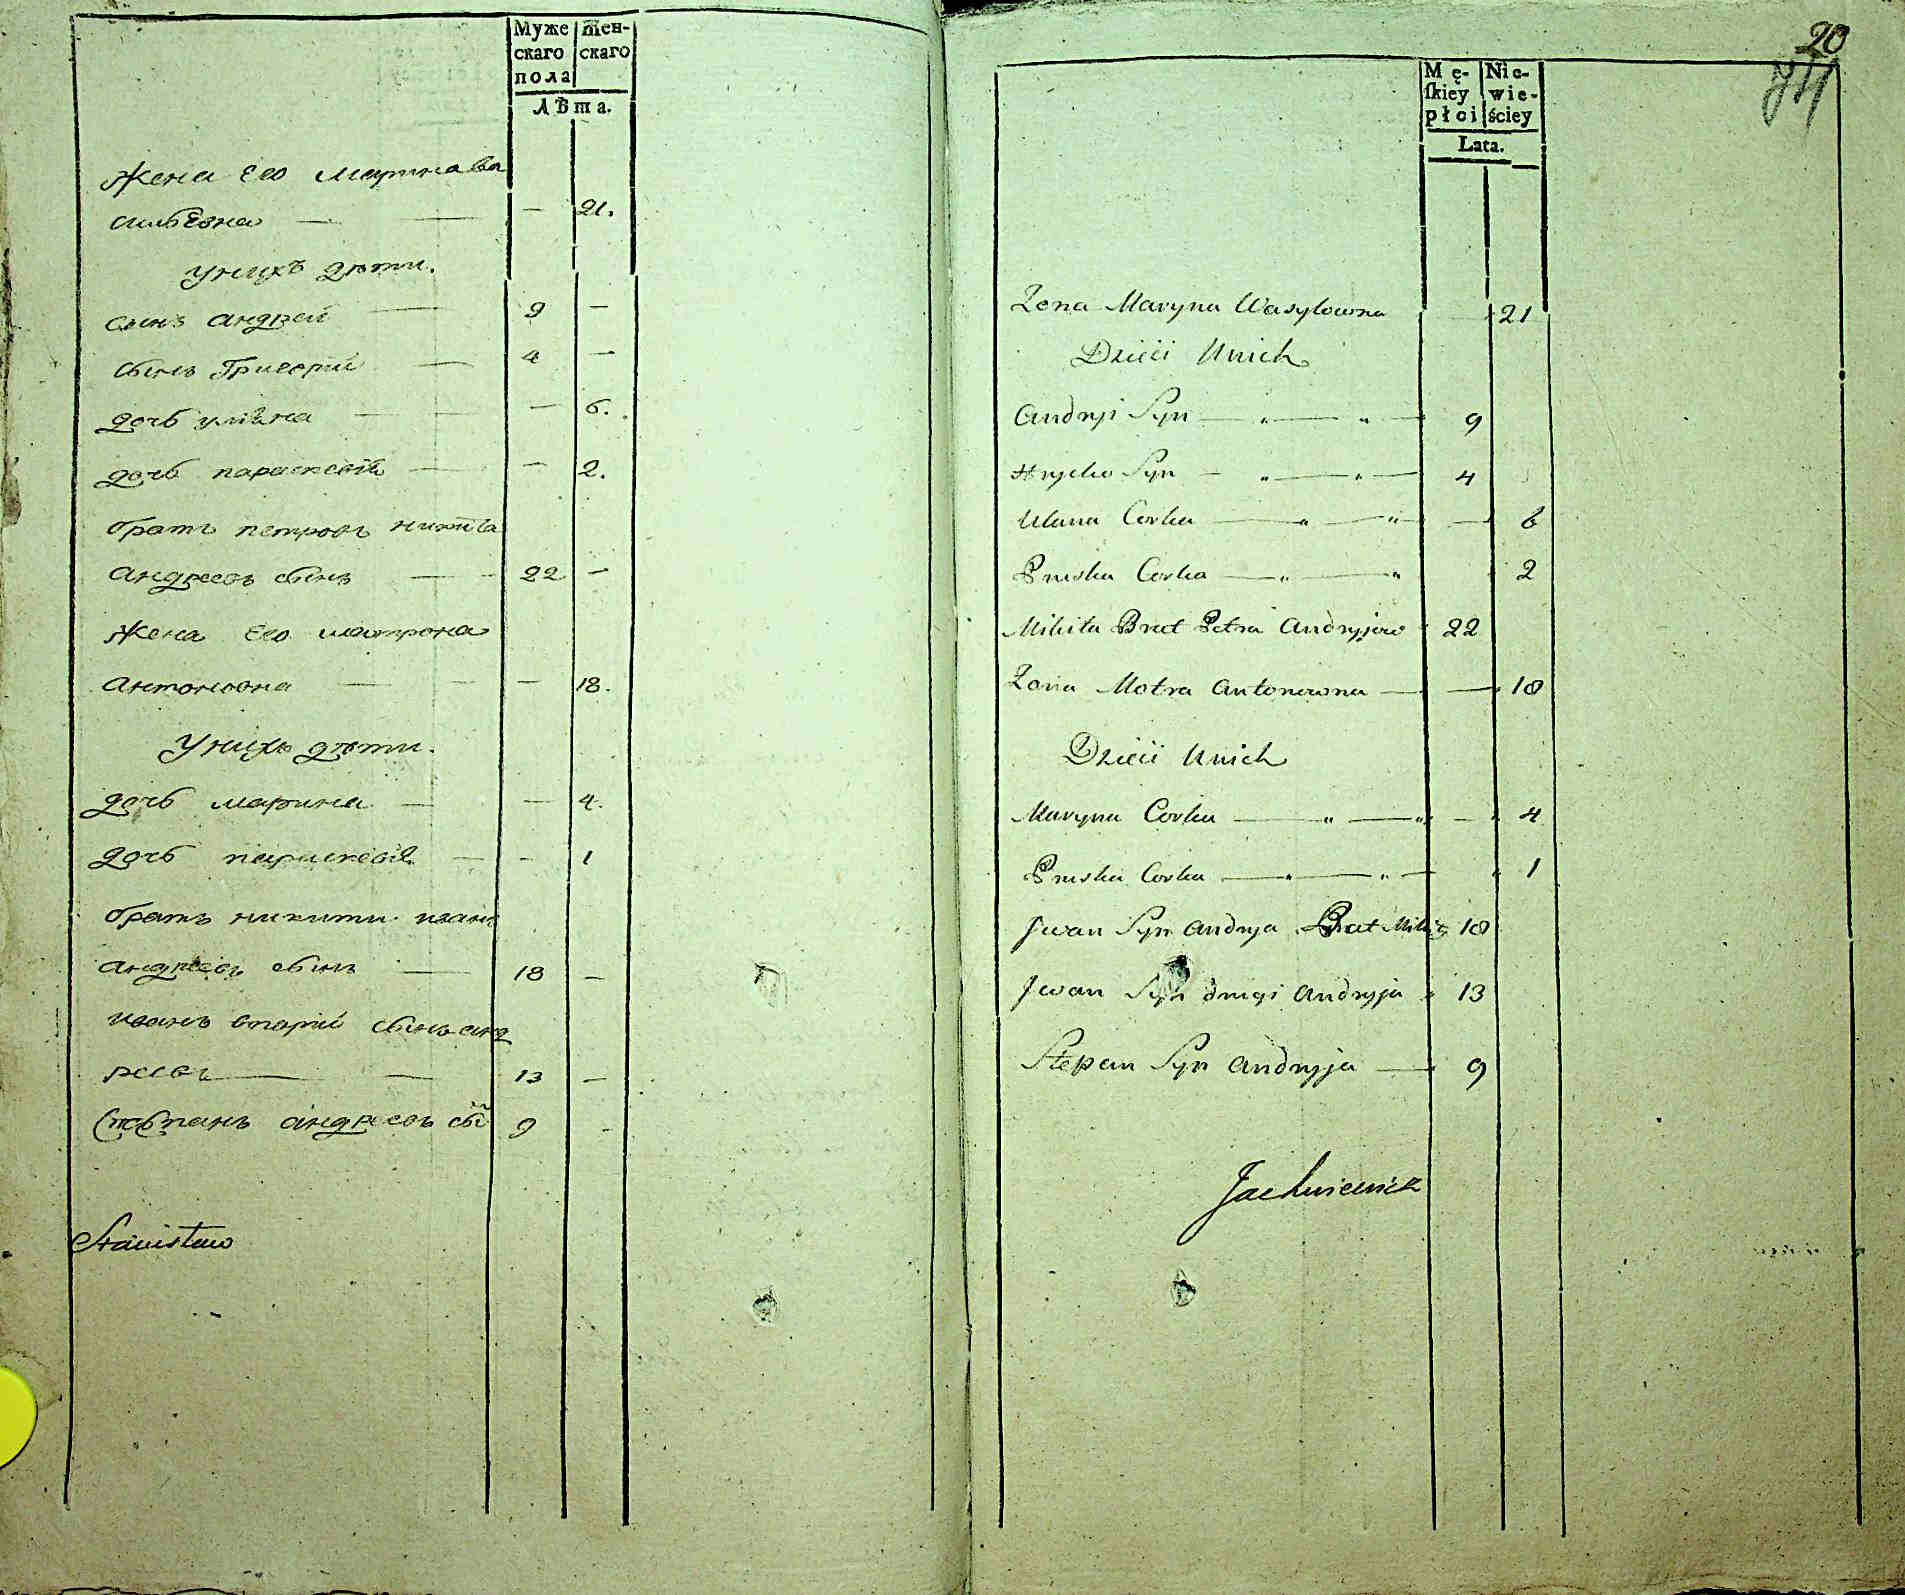 Муже
скаго
пола
Жен-
скаго
Лѣта.
жена его марина ва
сильевна — — — 21.
у нихъ дѣти.
сынъ андрей — 9 —
сынъ григорий — 4 —
дочь уляна — — — 6.
дочь параскевія — — 2.
братъ петровъ никита
андреевъ сынъ — 22 —
жена его матрона
антоновна — — — 18.
у нихъ дѣти.
дочь марина — — 4.
дочь параскевія — — 1
братъ никити иванъ
андреевъ сынъ — 18 —
иванъ вторій сынъ анд
реевъ — — 13 —
степанъ андреевъ сы 9 -
Stanisław
20
Mę-
ſkiey
płci
Nie-
wie-
ściey
Lata.
Zona Maryna Wasylowna 21
Dzieci Unich
Andryi Syn — „ — „ — 9
Hryćko Syn — „ — „ — 4
Ulana Corka — „ — „ — 6
Pruska Corka — „ — „ 2
Mikita Brat Petra Andryjow 22
Zona Motra Antonowna — — 18
Dzieci Unich
Maryna Corka — „ — „ — 4
Pruska Corka — „ — „ — 1
Jwan Syn Andryja Brat Mikity 18
Jwan Syn drugi Andryja „ 13
Stepan Syn Andryja — 9
Jachniewicz